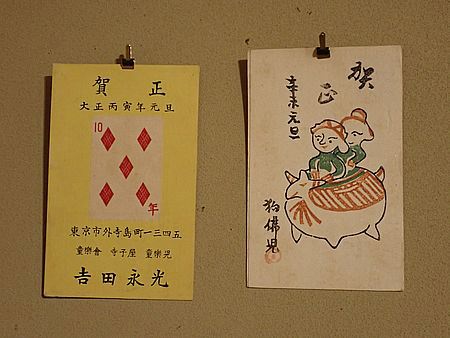 賀 正
大正丙寅年元旦
10
年
東京市外寺島町一三四五
童樂會 寺子屋 童樂児
吉田永光
賀
正
辛未元旦
狗佛児